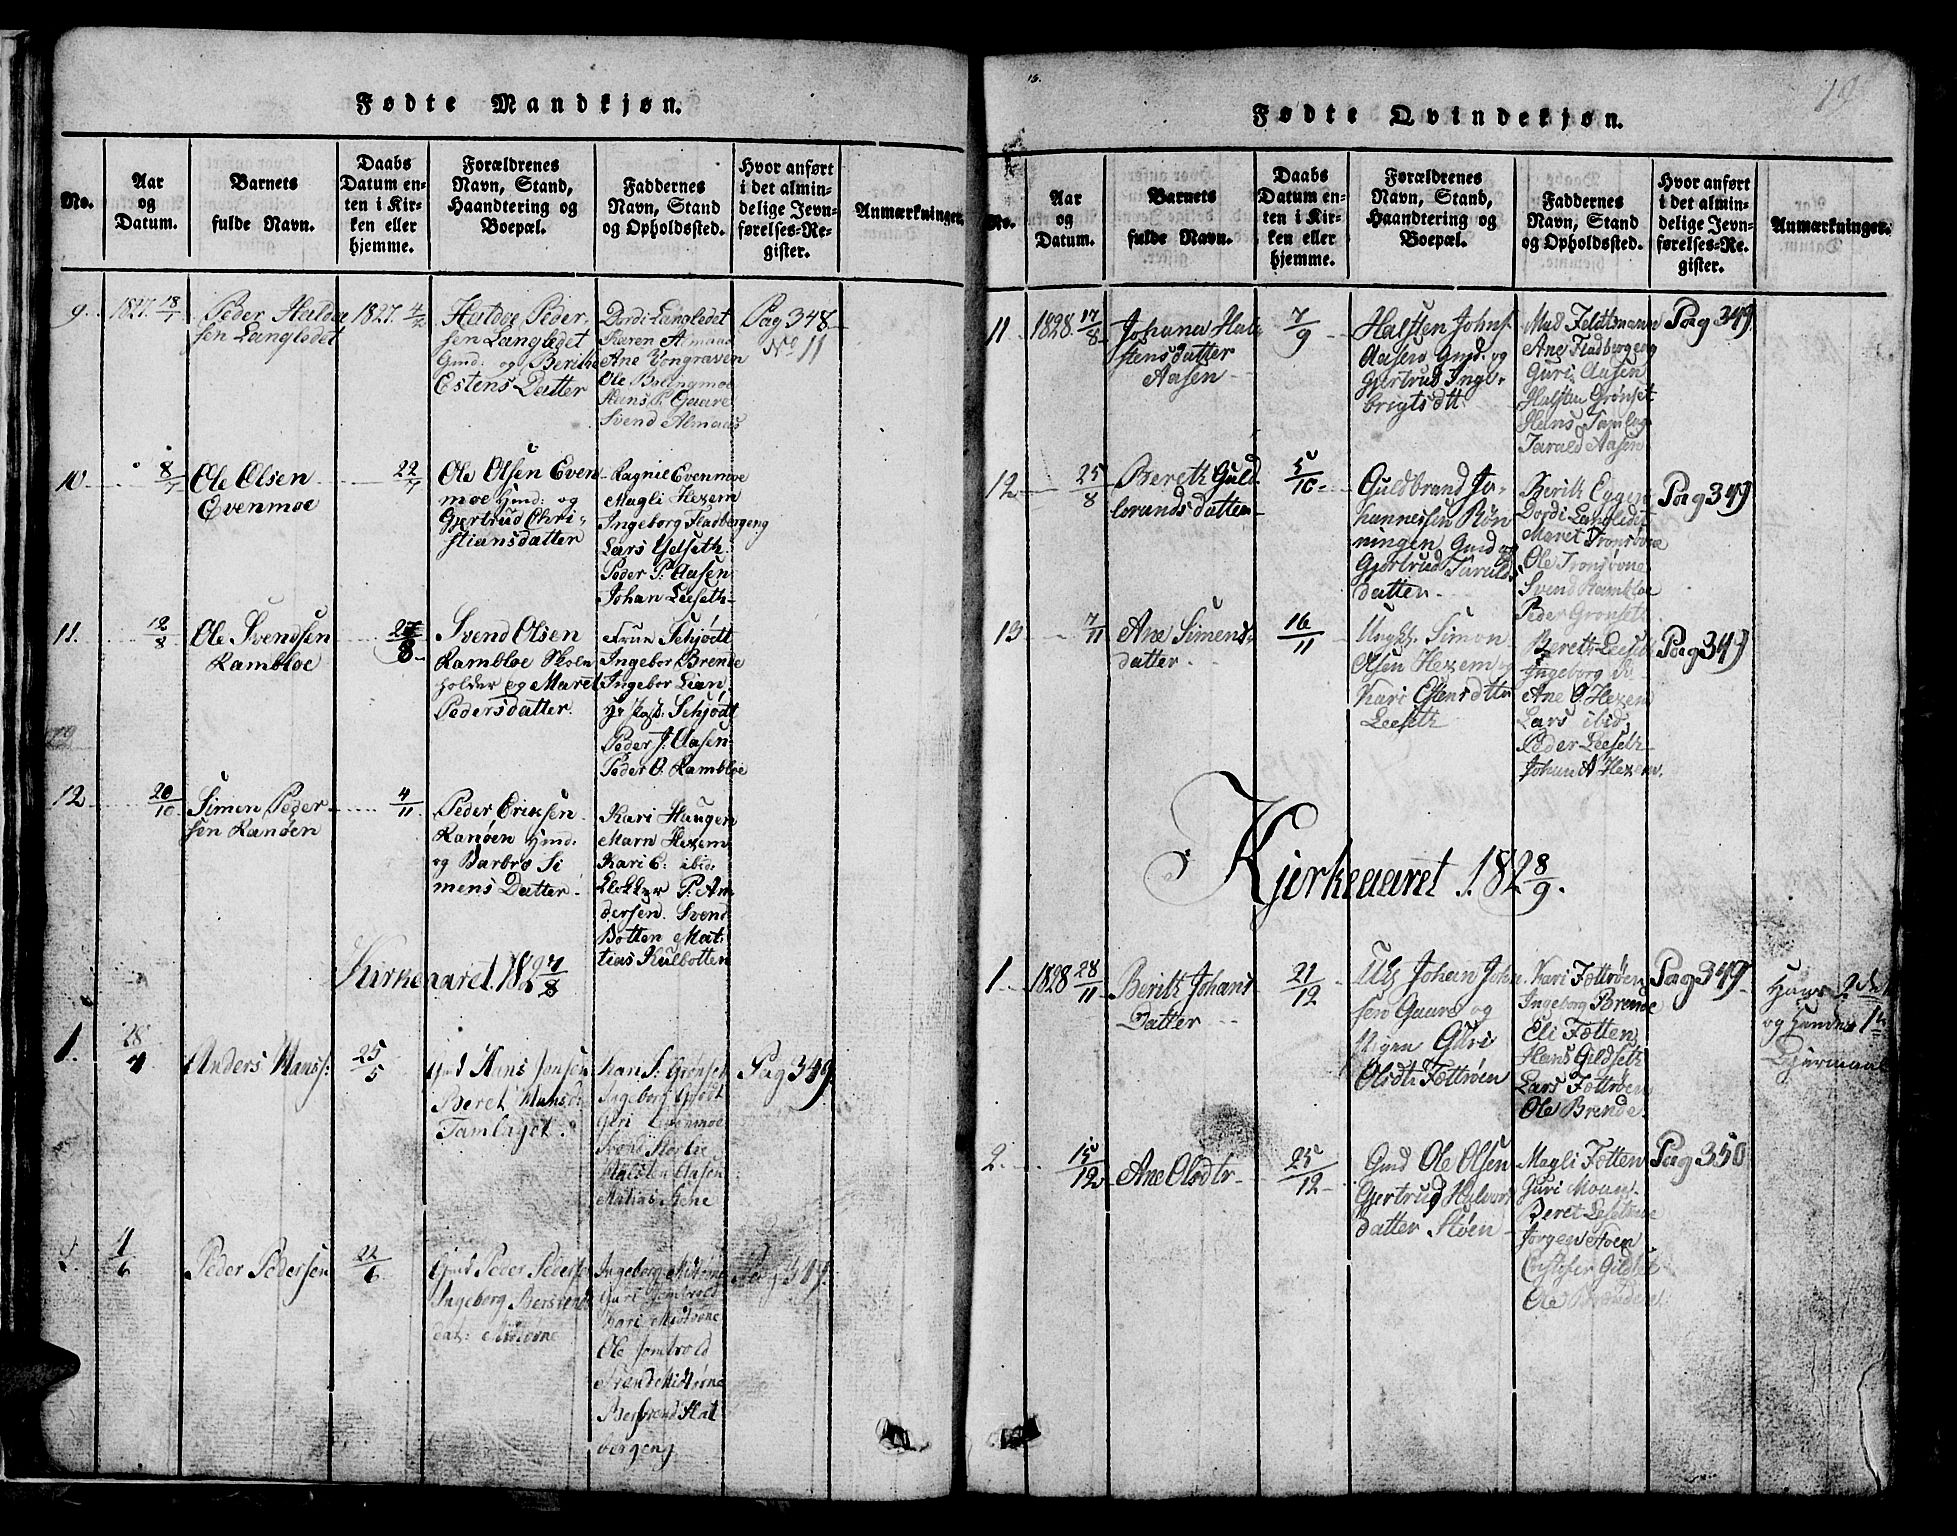 Fødte Mandkjøn.
No.
Aar
og
Datum.
Barnets
fulde Navn.
Daabs
Datum en-
ten i Kir-
ken eller
hjemme.
Forældrenes
Navn, Stand,
Haandtering og
Boepæl.
Faddernes
Navn, Stand
og Opholdssted.
Hvor anført
i det almin-
delige Jevn-
førelses-Re-
gister.
Anmærkninger.
9. 1827. 18/7
Peder Haldo
sen Langledet
1827. 4/2
Haldoe Peder-
sen Langledet
Gmd: og Berithe
Estens Datter
Dordi Langledet
Karen Almaas
Ane Vongraven
Ole Brengmoe
Hans P. Gaare
Svend Almaas
Pag 348
No 11
10. 8/7
Ole Olsen
Evenmoe
22/7
Ole Olsen Even
moe Hmd: og
Gjertrud Chri-
stiansdatter
Ragnil Evenmoe
Magli Hexem
Ingeborg Fladbergeng
Lars Ydseth:
Peder P. Aasen
Johan Leeseth
11. 12/8
Ole Svendsen
Rambloe
27/8
Svend Olsen
Rambloe Skole
holder og Maret
Pedersdatter
Frue Schjødt
Ingebor Brende
Ingebor Lian
Schjødt
Peder J. Aasen
Peder O. Rambloe
12 20/10
Simen Peder
sen Ranøen
4/11
Peder Eriksen
Ranøen Hmd:
og Barbro Si
mens Datter
Kari Haugen
Marn Hexem
Kari E: ibid:
Klokker P. An
dersen. Svend
Botten Mat
tias Kulbotten
Kirkeaaret 1827/8
1. 28/4
Anders Hanss:
25/5
Gmd Hans Jonsen
Beret Hansd:
Tamlaget
Kari S: Grønset
Ingeborg Schjødt
Guri Evenmoe
Svend
Halsten Aasen
Matias
Pag 349
2. 4/6
Peder Pedersen
22/6
Gmd Peder Peders
Ingeborg Bersvends
dat: Midtrøne
Ingeborg Midtrøne
Guri Jombrold
Kari Midtrøne
Ole Jombrold
Trond Midtrøne
Bersvend Flat
bergeng
Pag 349
15.
19
Fødte Qvindekjøn.
No.
Aar
og
Datum.
Barnets
fulde Navn.
Daabs
Datum en-
ten i Kir-
ken eller
hjemme.
Forældrenes
Navn, Stand,
Haandtering og
Boepæl.
Faddernes
Navn, Stand
og Opholdssted.
Hvor anført
i det almin-
delige Jevn-
førelses-Re-
gister.
Anmærkninger.
11 1828. 17/8
Johana Hal-
stensdatter
Aasen
7/9
Halsten Johns
Aasen Gmd. og
Gjertrud Inge-
brigtsdtt
Mad Feldtmann
Ane Fladbergeng
Guri Aasen
Halsten Grønset
Hans Tamlag
Tarald Aasen
Pag 349
12 25/8
Bereth Guld
brandsdatter
5/10
Guldbrand Jo-
hannessen Røn
ningen Gmd og
Gjertrud Taralds
datter
Berith Eggen
Dordi Langledet
Maret Tronsrone
Ole Trondrone
Svend Rambloe
Peder Grønset
Pag 349
13 7/11
Ane Simens-
datter
16/11
Ungk: Simon
Olsen Hexem og
Kari Estensdtter
Leeseth
Bereth Leeseth
Ingeborg do
Ane O. Hexem
Lars ibid:
Peder Leeseth
Johan A Hexem
Pag 349
Kjerkeaaret 1828/9.
1 1828 28/11
Berith Johans
Datter
21/12
Uk Johan John
sen Gaare og
Pigen Guri
Olsdtr Fættrøen
Kari Fættrøen
Ingeborg Brende
Eli Fætten
Hans Gildseth
Lars Fættrøen
Ole Brende
Pag 349
Hans 2det
og hendes 1te
Leiermaal
2. 15/12
Ane Olsdtr
25/12
Gmd Ole Olsen
Gjertrud Halvors
datter Støen
Magli Fætten
Guri Moan
Beret Leeseth
Jørgen Støen
Cristofer Gildset
Ole
Pag 350